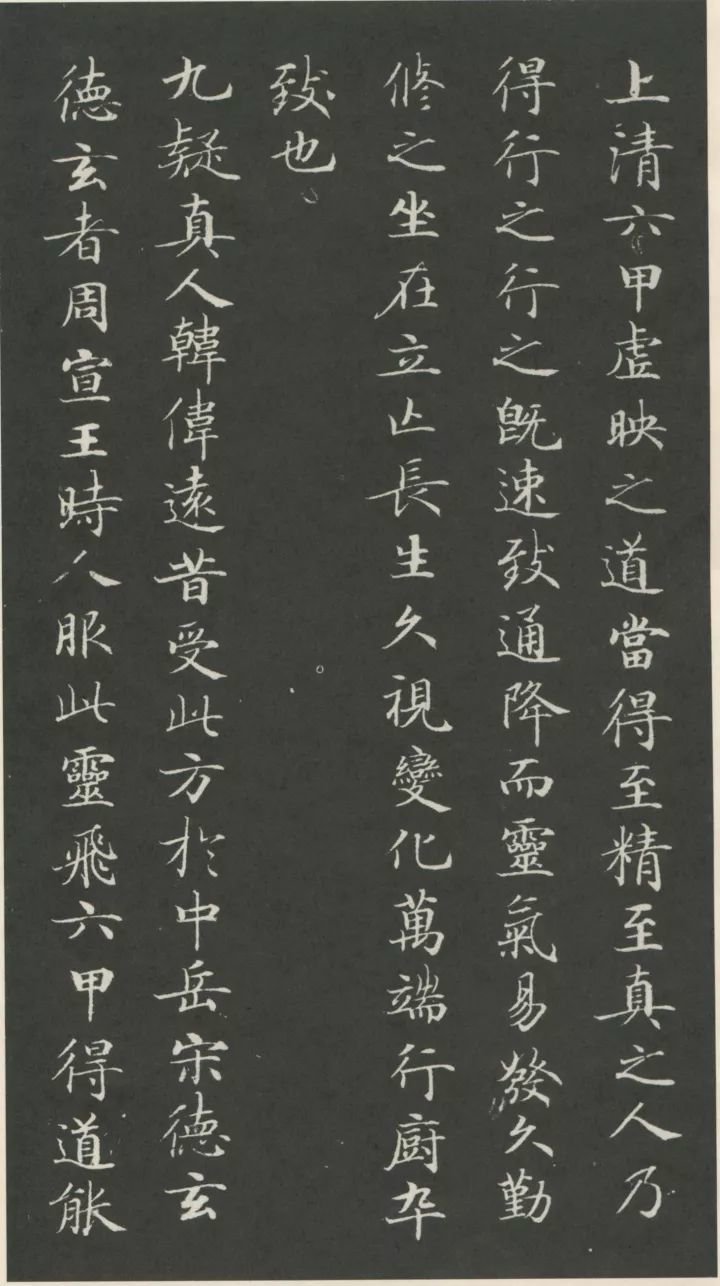 上清六甲虛映之道當得至精至真之人乃
得行之行之既速致通降而靈氣易發久勤
脩之坐在立亾長生久視變化萬端行廚卒
致也
九疑真人韓偉遠昔受此方於中岳宋德玄
德玄者周宣王時人服此靈飛六甲得道能